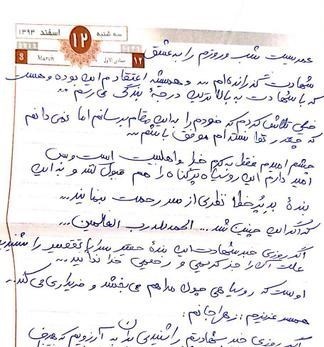 سه شنبه ۱۲ اسفند ۱۳۹۳
3 March ۱۲
عمریست شب و روزم را به عشق
شهادت گذرانده‌ام ... و همیشه اعتقادم این بوده و هست
که با شهادت به بالاترین درجه بندگی می‌رسم ...
خیلی تلاش کردم که خودم را به این مقام برسانم اما نمی‌دانم
که چقدر توانسته‌ام موفق باشم ...
چشم امیدم فقط به کرم خدا و اهلبیت است و بس
امید دارم این رو سیاه پرگناه را هم قبول کنند و به این
بنده بد پرخطا نظری از سر رحمت بنمایند ...
که اگر این چنین شد ... الحمدلله رب العالمین ...
اگر روزی خبر شهادت این بنده حقیر سراپا تقصیر را شنیدید
علت آن را جز کرمی و رحیمی خدا ندانید ...
اوست که رو سیاهی چون مرا هم می‌بخشد و خریداری می‌کند ...
همسر عزیزم زهرا جانم:
اگر روزی خبر شهادتم را شنیدی بدان به آرزویم که هدف